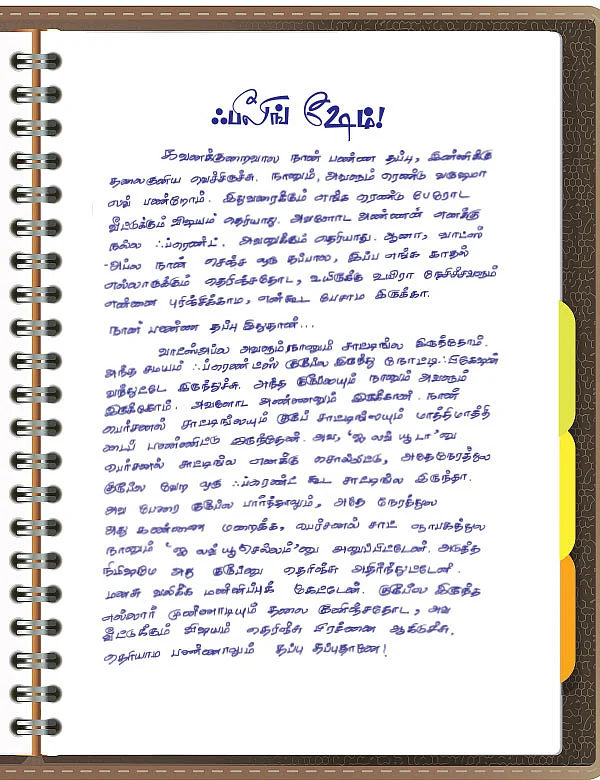 ஃபீலிங் ஷேம்!
கவனக்குறைவால நான் பண்ண தப்பு, இன்னிக்கு
தலைகுனிய வெச்சிருச்சு. நானும், அவளும் ரெண்டு வருஷமா
லவ் பண்றோம். இதுவரைக்கும் எங்க ரெண்டு பேரோட
வீட்டுக்கும் விஷயம் தெரியாது. அவளோட அண்ணன் எனக்கு
நல்ல ஃப்ரெண்ட். அவனுக்கும் தெரியாது. ஆனா, வாட்ஸ்
-அப்ல நான் செஞ்ச ஒரு தப்பால, இப்ப எங்க காதல்
எல்லாருக்கும் தெரிஞ்சதோட, உயிருக்கு உயிரா நேசிச்சவளும்
என்னை புரிஞ்சிக்காம, என்கூட பேசாம இருக்கா.
நான் பண்ண தப்பு இதுதான்...
வாட்ஸ்அப்ல அவளும் நானும் சாட்டிங்ல இருந்தோம்.
அந்த சமயம் ஃப்ரெண்ட்ஸ் குரூப்ல இருந்து நோட்டிஃபிகேஷன்
வந்துட்டே இருந்துச்சு. அந்த குரூப்லயும் நானும் அவளும்
இருக்கோம். அவளோட அண்ணனும் இருக்கான். நான்
பெர்சனல் சாட்டிங்லயும் குரூப் சாட்டிங்லயும் மாத்திமாத்தி
டைப் பண்ணிட்டு இருந்தேன். அவ, 'ஐ லவ் யூ டா'னு
பெர்சனல் சாட்டிங்ல எனக்கு சொல்லிட்டு, அதேநேரத்துல
குரூப்ல வேற ஒரு ஃப்ரெண்ட் கூட சாட்டிங்ல இருந்தா.
அவ பேரை குரூப்ல பார்த்தாலும், அதே நேரத்துல
அது கண்ணை மறைக்க, பெர்சனல் சாட் ஞாபகத்துல
நானும் 'ஐ லவ் யூ செல்லம்'னு அனுப்பிட்டேன். அடுத்த
நிமிஷமே அது குரூப்னு தெரிஞ்சு அதிர்ந்துட்டேன்.
மனசு வலிக்க மன்னிப்புக் கேட்டேன். குரூப்ல இருந்த
எல்லார் முன்னாடியும் தலை குனிஞ்சதோட, அவ
வீட்டுக்கும் விஷயம் தெரிஞ்சு பிரச்னை ஆகிடுச்சு.
தெரியாம பண்ணாலும் தப்பு தப்புதானே!